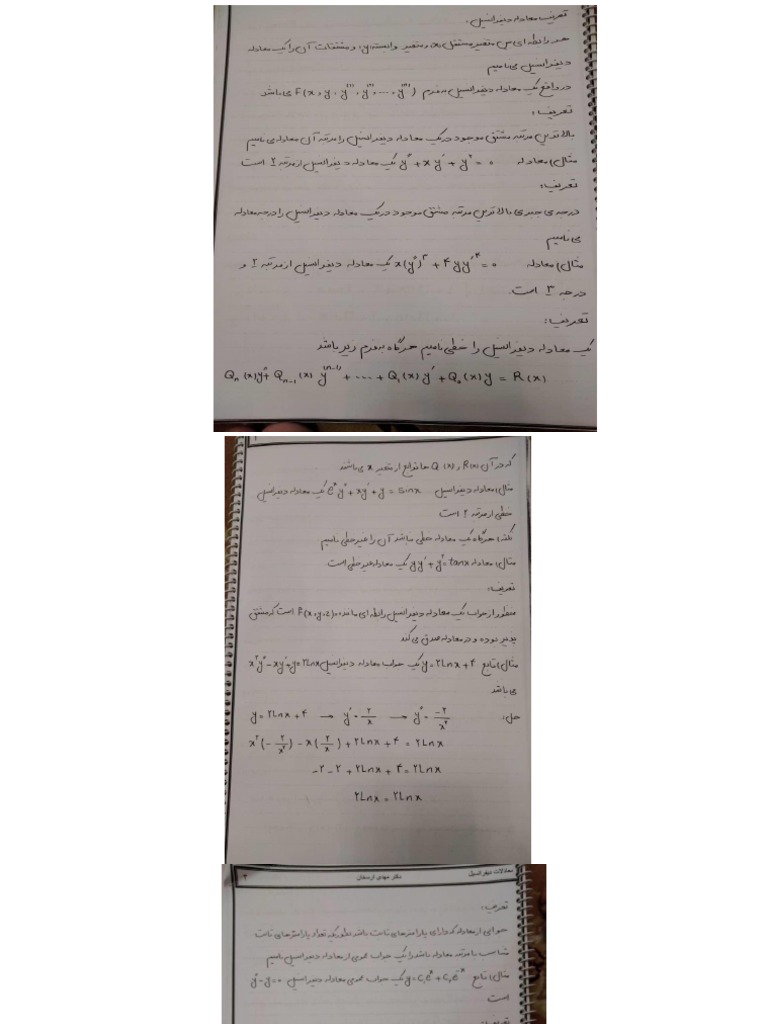 تعریف معادله دیفرانسیل:
هر رابطه ای بین متغیر مستقل x، متغیر وابسته y، و مشتقات آن را یک معادله
دیفرانسیل می نامیم
در واقع یک معادله دیفرانسیل به فرم F(x, y, y', y'', ..., y⁽ⁿ⁾) می باشد
تعریف:
بالاترین مرتبه مشتق موجود در یک معادله دیفرانسیل را مرتبه آن معادله می نامیم
مثال) معادله y'' + xy' + y² = ۰ یک معادله دیفرانسیل از مرتبه ۲ است
تعریف:
درجه ی جبری بالاترین مرتبه مشتق موجود در یک معادله دیفرانسیل را درجه معادله
می نامیم
مثال) معادله x(y'')³ + ۴yy'⁴ = ۰ یک معادله دیفرانسیل از مرتبه ۲ و
درجه ۳ است.
تعریف:
یک معادله دیفرانسیل را خطی نامیم هرگاه به فرم زیر باشد
Qₙ(x)y⁽ⁿ⁾ + Qₙ₋₁(x) y⁽ⁿ⁻¹⁾ + .... + Q₁(x) y' + Q₀(x) y = R(x)
که در آن R(x) و Q(x) ها توابع از متغیر x می باشند
مثال) معادله دیفرانسیل eˣy'' + xy' + y = sinx یک معادله دیفرانسیل
خطی از مرتبه ۲ است
نکته) هرگاه یک معادله خطی نباشد آن را غیر خطی نامیم
مثال) معادله yy' + y'' = tanx یک معادله غیر خطی است
تعریف:
منظور از جواب یک معادله دیفرانسیل رابطه ای مانند F(x,y,z)=۰ است که مشتق
پذیر بوده و در معادله صدق می کند
مثال) تابع y = ۲Lnx + ۴ یک جواب معادله دیفرانسیل x²y'' - xy' + y = ۲Lnx
می باشد
حل: y = ۲Lnx + ۴ → y' = ۲/x → y'' = -۲/x²
x²(-۲/x²) - x(۲/x) + ۲Lnx + ۴ = ۲Lnx
-۲ - ۲ + ۲Lnx + ۴ = ۲Lnx
۲Lnx = ۲Lnx
معادلات دیفرانسیل دکتر مهدی ۲
تعریف:
جوابی از معادله که دارای پارامترهای ثابت باشد بطوریکه تعداد پارامترهای ثابت
متناسب با مرتبه معادله باشد را یک جواب عمومی از معادله دیفرانسیل نامیم
مثال) تابع y = C₁eˣ + C₂e⁻ˣ یک جواب عمومی معادله دیفرانسیل y'' - y = ۰
است
تعریف: